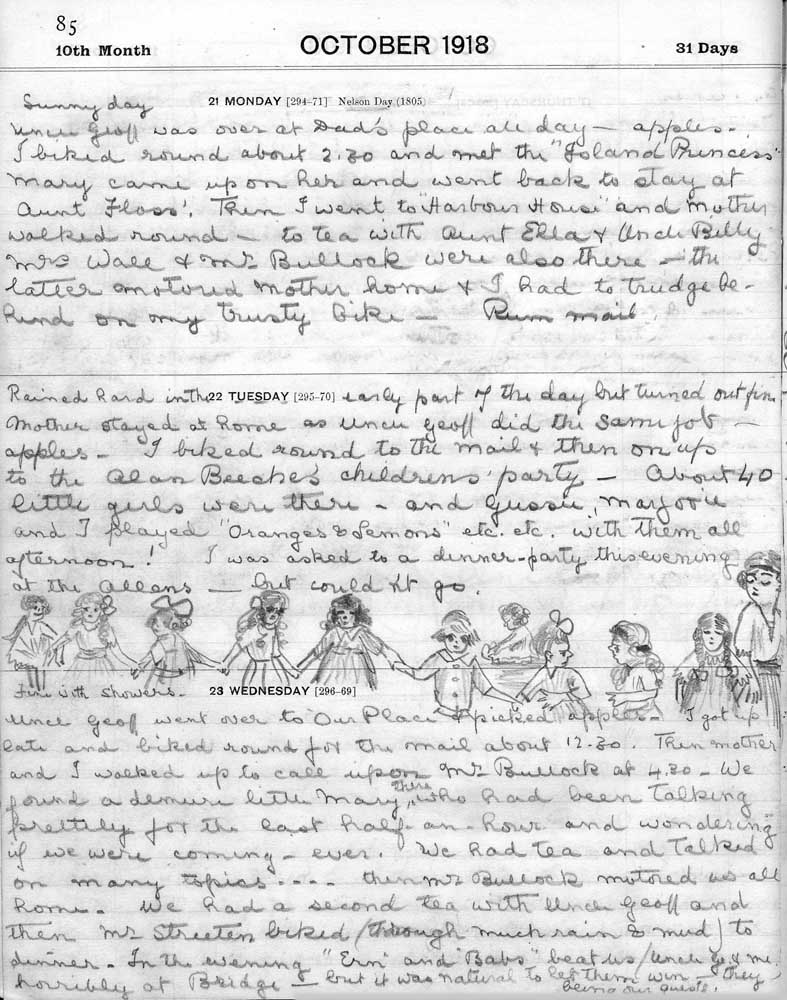 85
10th Month
OCTOBER 1918
31 Days
Sunny day
21 MONDAY [294-71] Nelson Day (1805)
Uncle Geoff was over at Dad's place all day – apples.
I biked round about 2.30 and met the "Island Princess"
Mary came up on her and went back to stay at
Aunt Floss'. Then I went to "Harbour House" and Mother
walked round – to tea with Aunt Ella & Uncle Billy
Mrs Wall & Mr Bullock were also there – the
latter motored Mother home & I had to trudge be-
hind on my trusty bike – Rum mail.
Rained hard in the 22 TUESDAY [295-70] early part of the day but turned out fine
Mother stayed at home as Uncle Geoff did the same job –
apples – I biked round to the mail & then on up
to the Alan Beeche's childrens' party – About 40
little girls were there – and Gussie, Marjorie
and I played "Oranges & Lemons" etc. etc. with them all
afternoon! I was asked to a dinner-party this evening
at the Allens – but couldn't go.
Fine with showers.
23 WEDNESDAY [296-69]
Uncle Geoff went over to "Our Place" & picked apples – I got up
late and biked round for the mail about 12.30. Then Mother
and I walked up to call upon Mr Bullock at 4.30 – We
found a demure little Mary there, who had been talking
prettily for the last half-an-hour and wondering
if we were coming – ever. We had tea and talked
on many topics .... then Mr Bullock motored us all
home. We had a second tea with Uncle Geoff and
then Mr Streeten biked (through much rain & mud) to
dinner. In the evening "Ern" and "Babs" beat us (Uncle G. & me)
horribly at Bridge – but it was natural to let them win – they
being our guests.